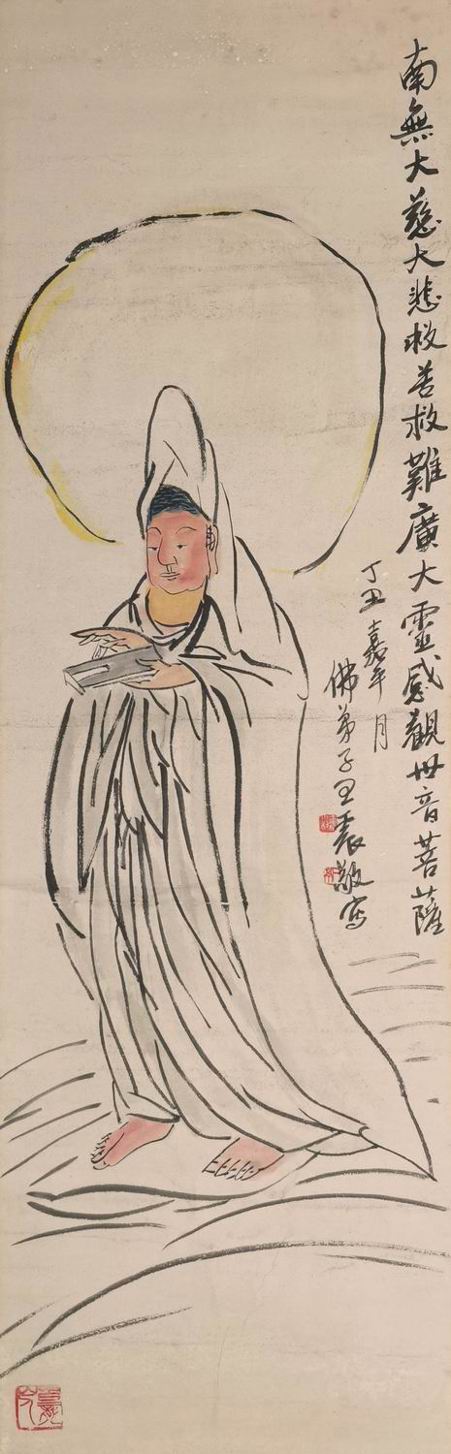 南無大慈大悲救苦救難廣大靈感觀世音菩薩
丁丑嘉平月
佛弟子王震敬寫